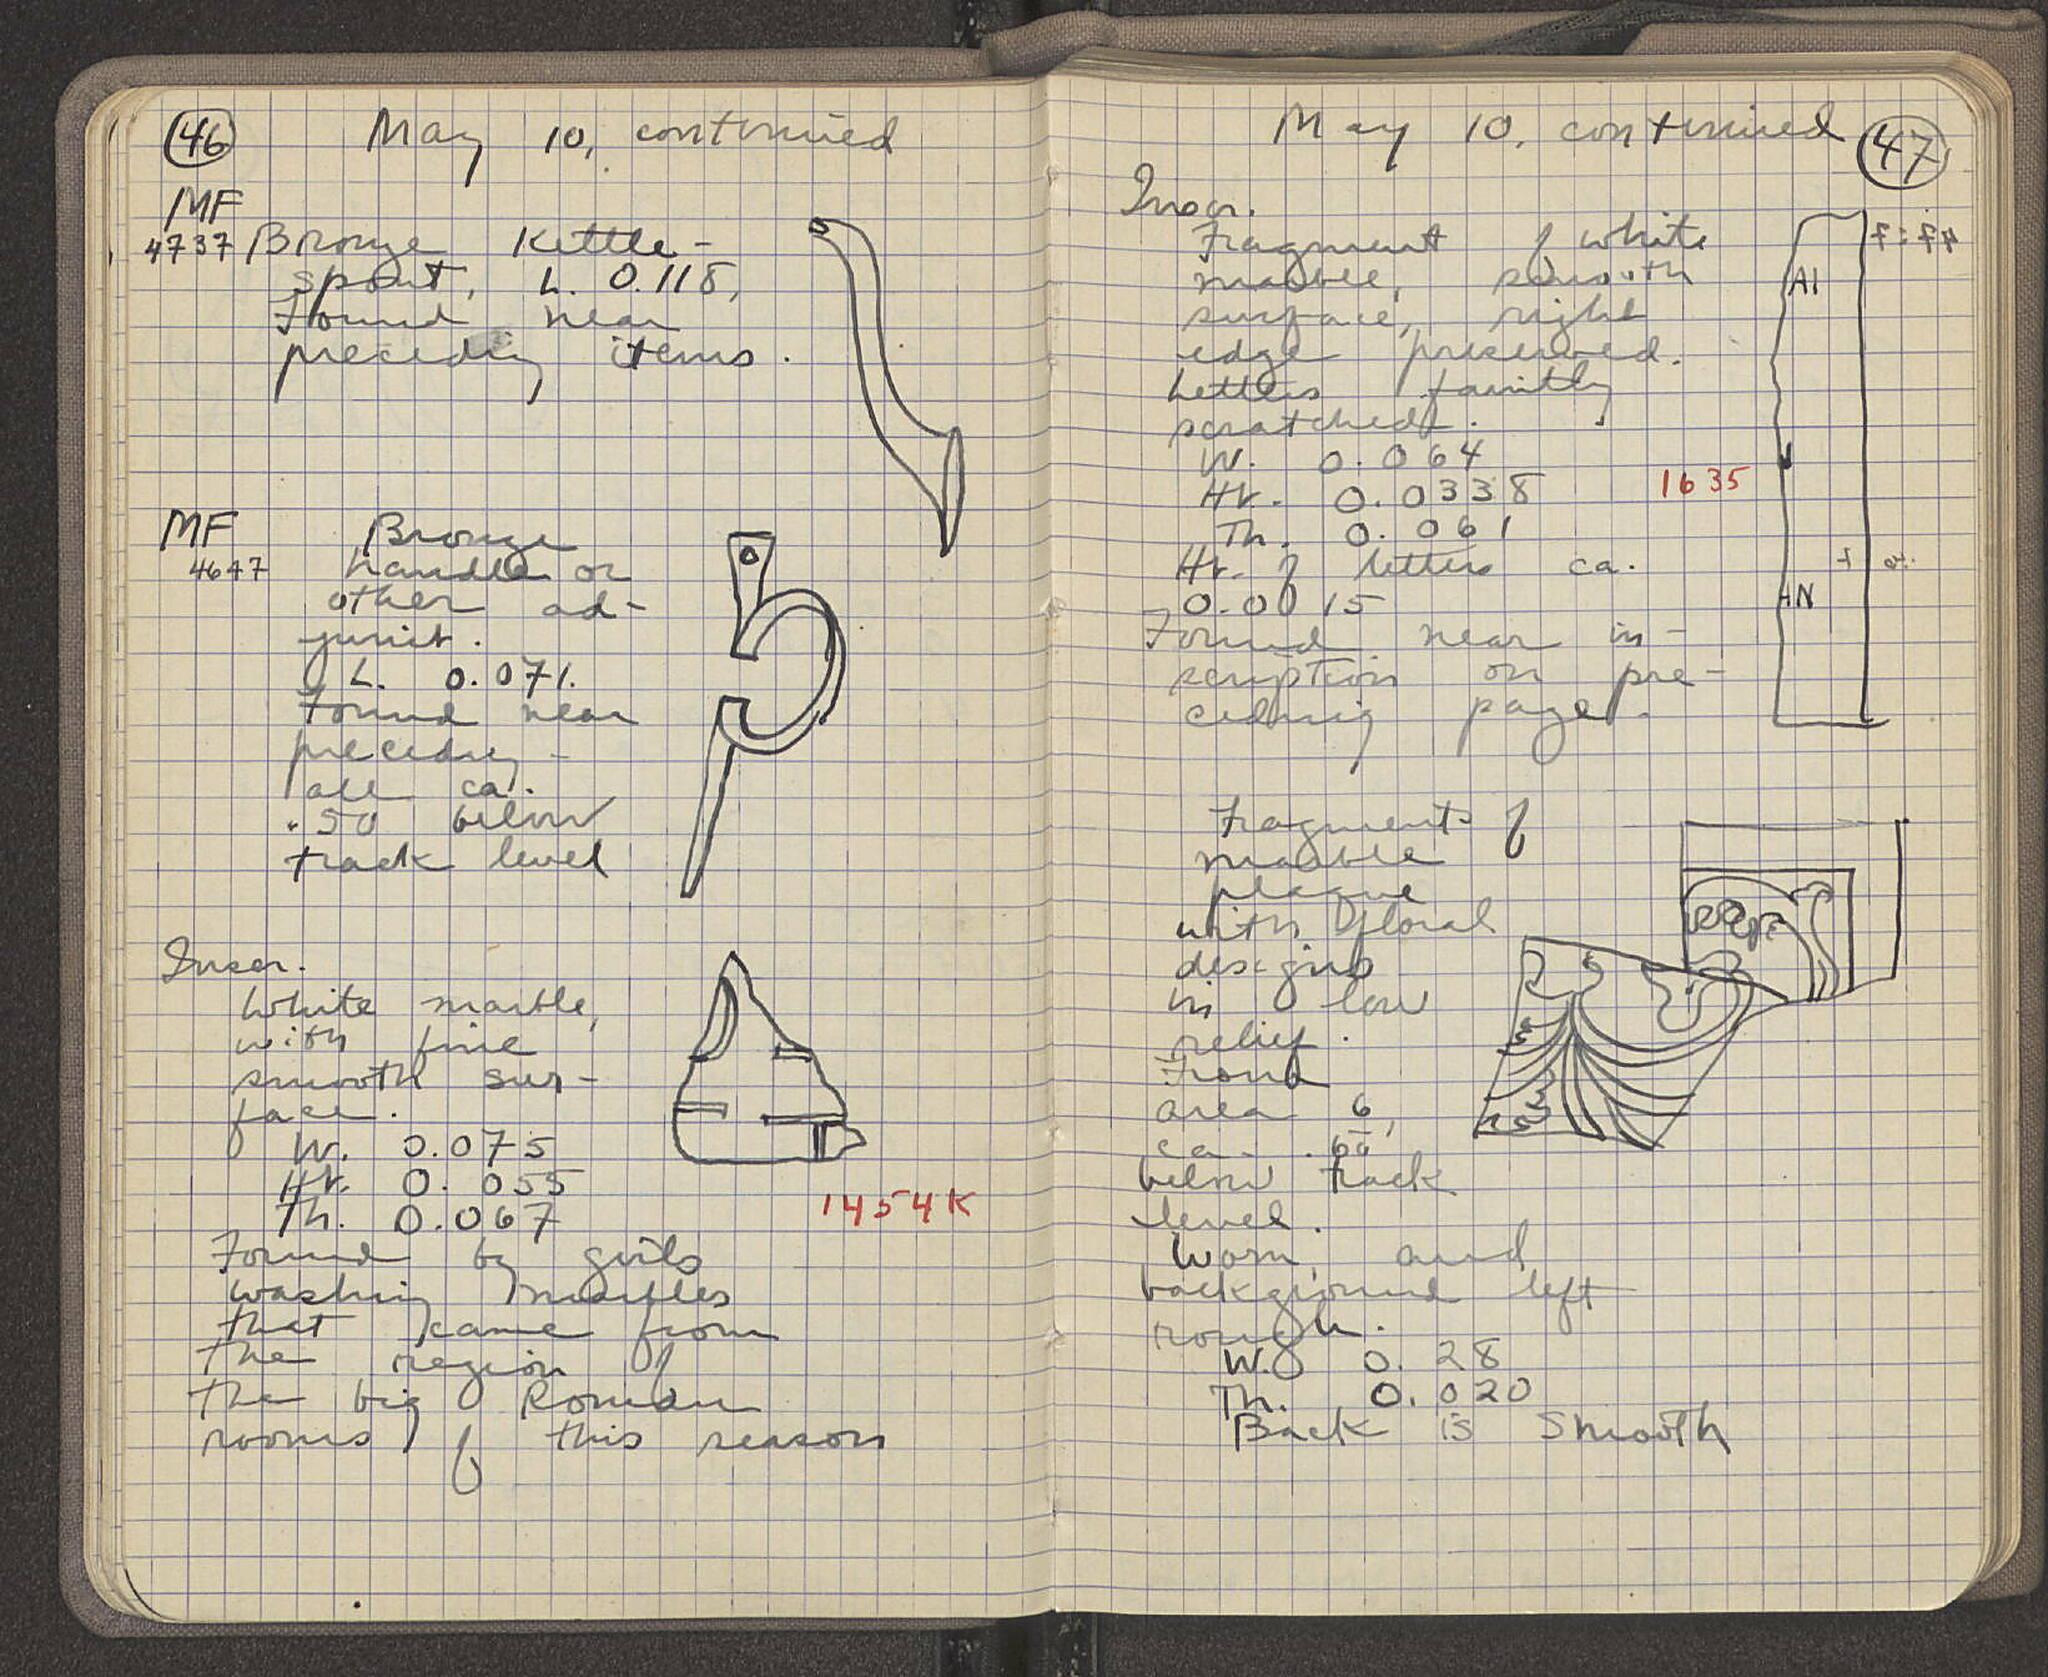 46
May 10, continued
MF
4737 Bronze Kettle-
spout, L. 0.118,
Found near
preceding items.
MF Bronze
4647 handle or
other ad-
junct.
L. 0.071.
Found near
preceding -
all ca.
.50 below
track level
Inscr.
White marble,
with fine
smooth sur-
face.
W. 0.075
Ht. 0.055
Th. 0.067
1454K
Found by girls
washing marbles
that came from
the region of
the big Roman
rooms of this season
May 10, continued 47
Inscr.
Fragment of white
marble, smooth
surface, right
edge preserved.
Letters faintly
scratched.
W. 0.064
Ht. 0.0338
Th. 0.061
Ht. of letters ca.
0.0015
Found near in-
scription on pre-
ceding page.
AI
HN
1635
Fragment of
marble
plaque
with floral
designs
in low
relief.
From
area 6,
ca. .60
below track
level.
Worn, and
background left
rough.
W. 0.28
Th. 0.020
Back is smooth